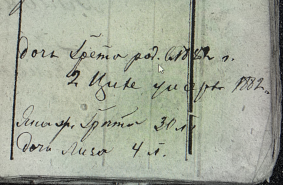 дочь Грета род. 1882 г.
2 Июля умерла 1882.
Яна ж. Грета 30 л.
дочь Лиза 4 л.